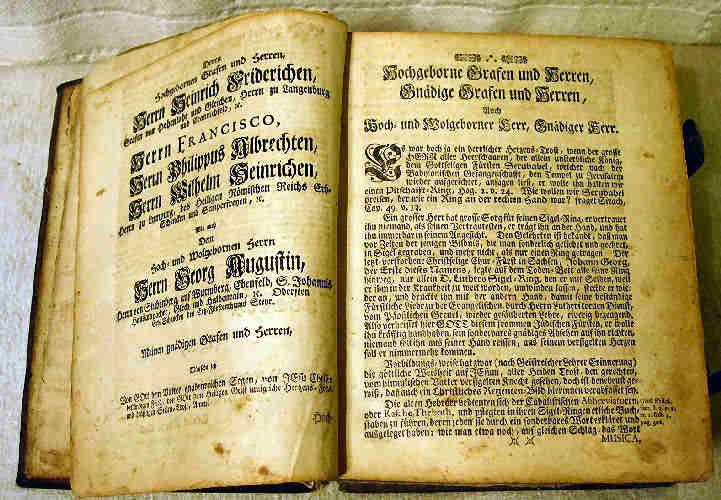 Denen
Hochgebornen Grafen und Herren,
Herrn Heinrich Friderichen,
Grafen von Hohenlohe und Gleichen, Herrn zu Langenburg
und Cranichfeld, ꝛc.
Herrn FRANCISCO,
Herrn Philippus Albrechten,
Herrn Wilhelm Heinrichen,
Herrn zu Limpurg, des Heiligen Römischen Reichs Erb-
Schencken und Semperfreyen, ꝛc.
Wie auch
Dem
Hoch- und Wolgebornen Herrn
Herrn Georg Augustin,
Herrn von Stubenberg, auf Wurmberg, Ebenfeld, S. Johanns
Guth und Halbenrain, ꝛc. Obersten
Erb-Schencken des Ertz-Hertzogthums Steyr.
Meinen gnädigen Grafen und Herren,
Von GOtt dem Vatter, von JEsu Christo
Hoch-
Hochgeborne Grafen und Herren,
Gnädige Grafen und Herren,
Auch
Hoch- und Wolgeborner Herr, Gnädiger Herr.
Es war doch ja ein herrlicher Hertzens-Trost, wenn der grosse
HERR aller Heerschaaren, der allein unsterbliche König,
dem Gottseligen Fürsten Serubabel, welcher nach der
Babylonischen Gefangenschafft, den Tempel zu Jerusalem
wieder aufgerichtet, ansagen ließ, er wolle ihn halten wie
einen Pitschafft-Ring, Hag. 2. v. 24. Wie wollen wir Serubabel
preisen, der wie ein Ring an der rechten Hand war? fraget Sirach,
Cap. 49. v. 13.
Ein grosser Herr hat grosse Sorg für seinen Sigel-Ring, er vertrauet
ihn niemand, als seinen Vertrautesten, er trägt ihn an der Hand, und hat
ihn immerdar in seinem Angesicht. Den Gelehrten ist bekandt, daß man
vor Zeiten der jenigen Bildnis, die man sonderlich geliebt und geehrt,
in Sigel gegraben, und mehr nicht, als nur einen Ring getragen. Der
letzt-verstorbene Christselige Chur-Fürst in Sachsen, Johann Georg,
der Erste dieses Namens, legte auf dem Todten-Bett alle seine Ring
hinweg, mit allein D. Luthers Sigel-Ring, den er mit Fleiß, weil
er ihm in der Kranckheit zu weit worden, umwinden lassen, steckte er wieder
an, und druckte ihn mit der andern Hand, damit seine beständige
Fürstliche Liebe zu der Evangelischen, durch Herrn Lutheri treuen Dienst,
vom Päpstischen Greuel, wieder gesäuberten Lehre, eiverig bezeugend.
Also verheisset hier GOTT diesem frommen Jüdischen Fürsten, er wolle
ihn kräfftig handhaben, sein sonderbares gnädiges Absehen auf ihn richten,
niemand soll ihn aus seiner Hand reissen, aus seinem versigelten Hertzen
soll er nimmermehr kommen.
Vorbildungs-weise hat zwar (nach Geistreicher Lehrer Erinnerung)
die göttliche Weisheit auf JEsum, aller Heiden Trost, den gerechten,
vom himmlischen Vatter versigelten Knecht gesehen, doch ist deneben ge-
wiß, daß auch ein Christliches Regenten-Bild hierinnen verabfasset sey.
Die alten Hebräer bedienten sich der Cabalistischen Abbreviaturen,
oder Rasche Theboth, und pflegten in ihren Sigel-Ringen etliche Buch-
staben zu führen, deren jeden sie durch ein sonderbares Wort erkläret und
ausgeleget haben: wie man etwa noch, auf gleichen Schlag, das Wort
MUSICA,